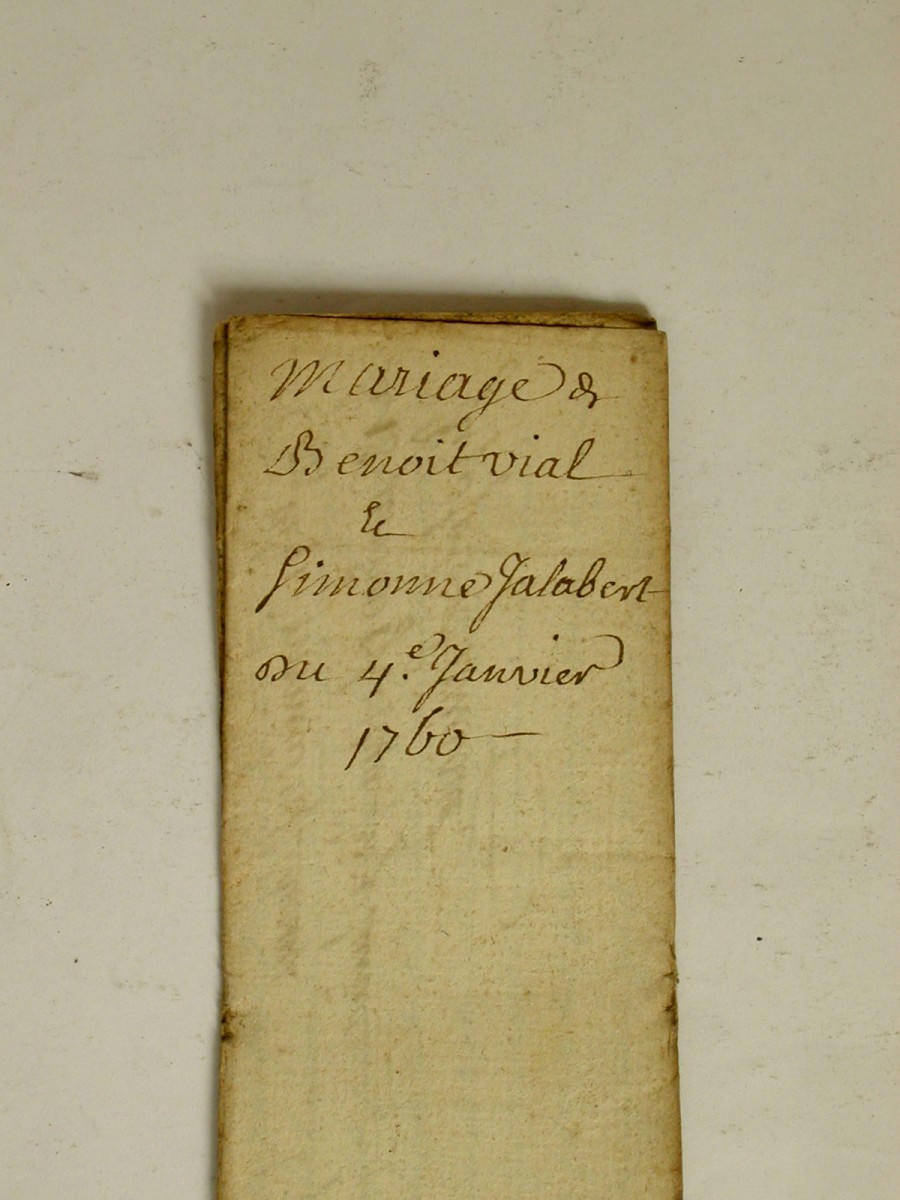 Mariage de
Benoit vial
Et
Simonne Jalabert
Du 4.e Janvier
1760